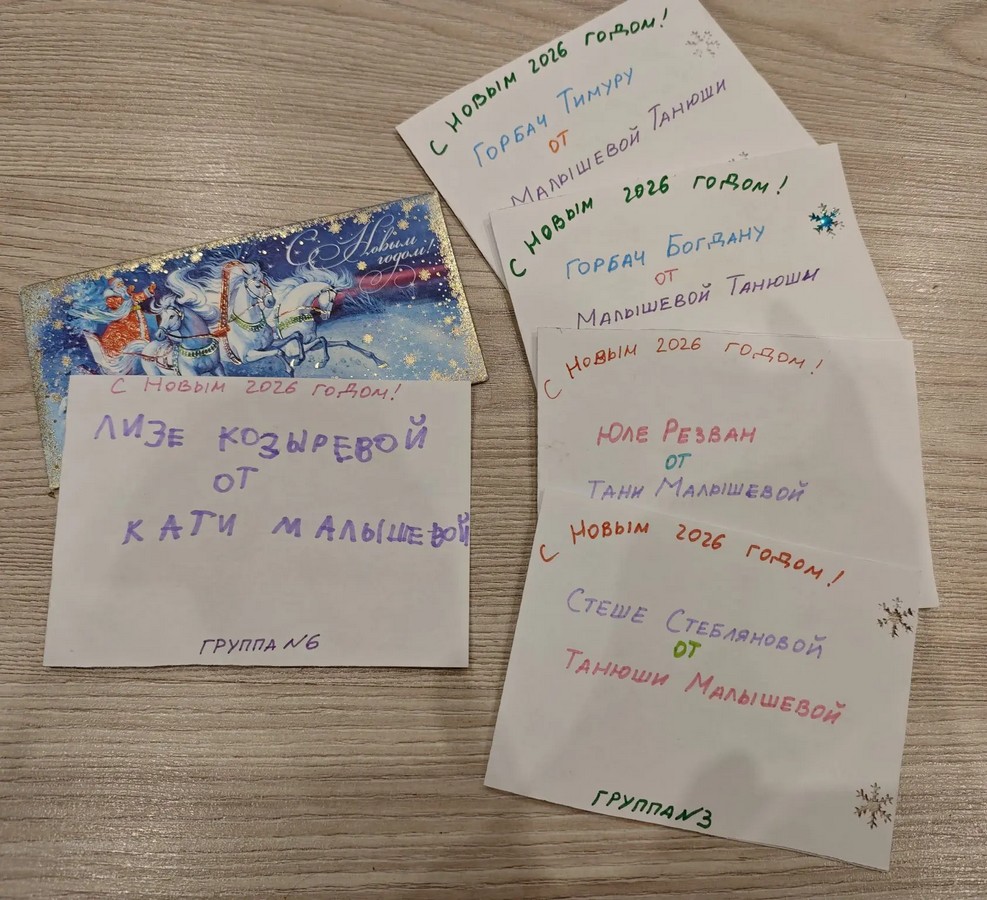 С Новым
годом!
С НОВЫМ 2026 ГОДОМ!
ЛИЗЕ КОЗЫРЕВОЙ
ОТ
КАТИ МАЛЫШЕВОЙ
ГРУППА №6
С НОВЫМ 2026 ГОДОМ!
ГОРБАЧ ТИМУРУ
ОТ
МАЛЫШЕВОЙ ТАНЮШИ
С НОВЫМ 2026 ГОДОМ!
ГОРБАЧ БОГДАНУ
ОТ
МАЛЫШЕВОЙ ТАНЮШИ
С НОВЫМ 2026 ГОДОМ!
ЮЛЕ РЕЗВАН
ОТ
ТАНИ МАЛЫШЕВОЙ
С НОВЫМ 2026 ГОДОМ!
СТЕШЕ СТЕБЛЯНОВОЙ
ОТ
ТАНЮШИ МАЛЫШЕВОЙ
ГРУППА №3